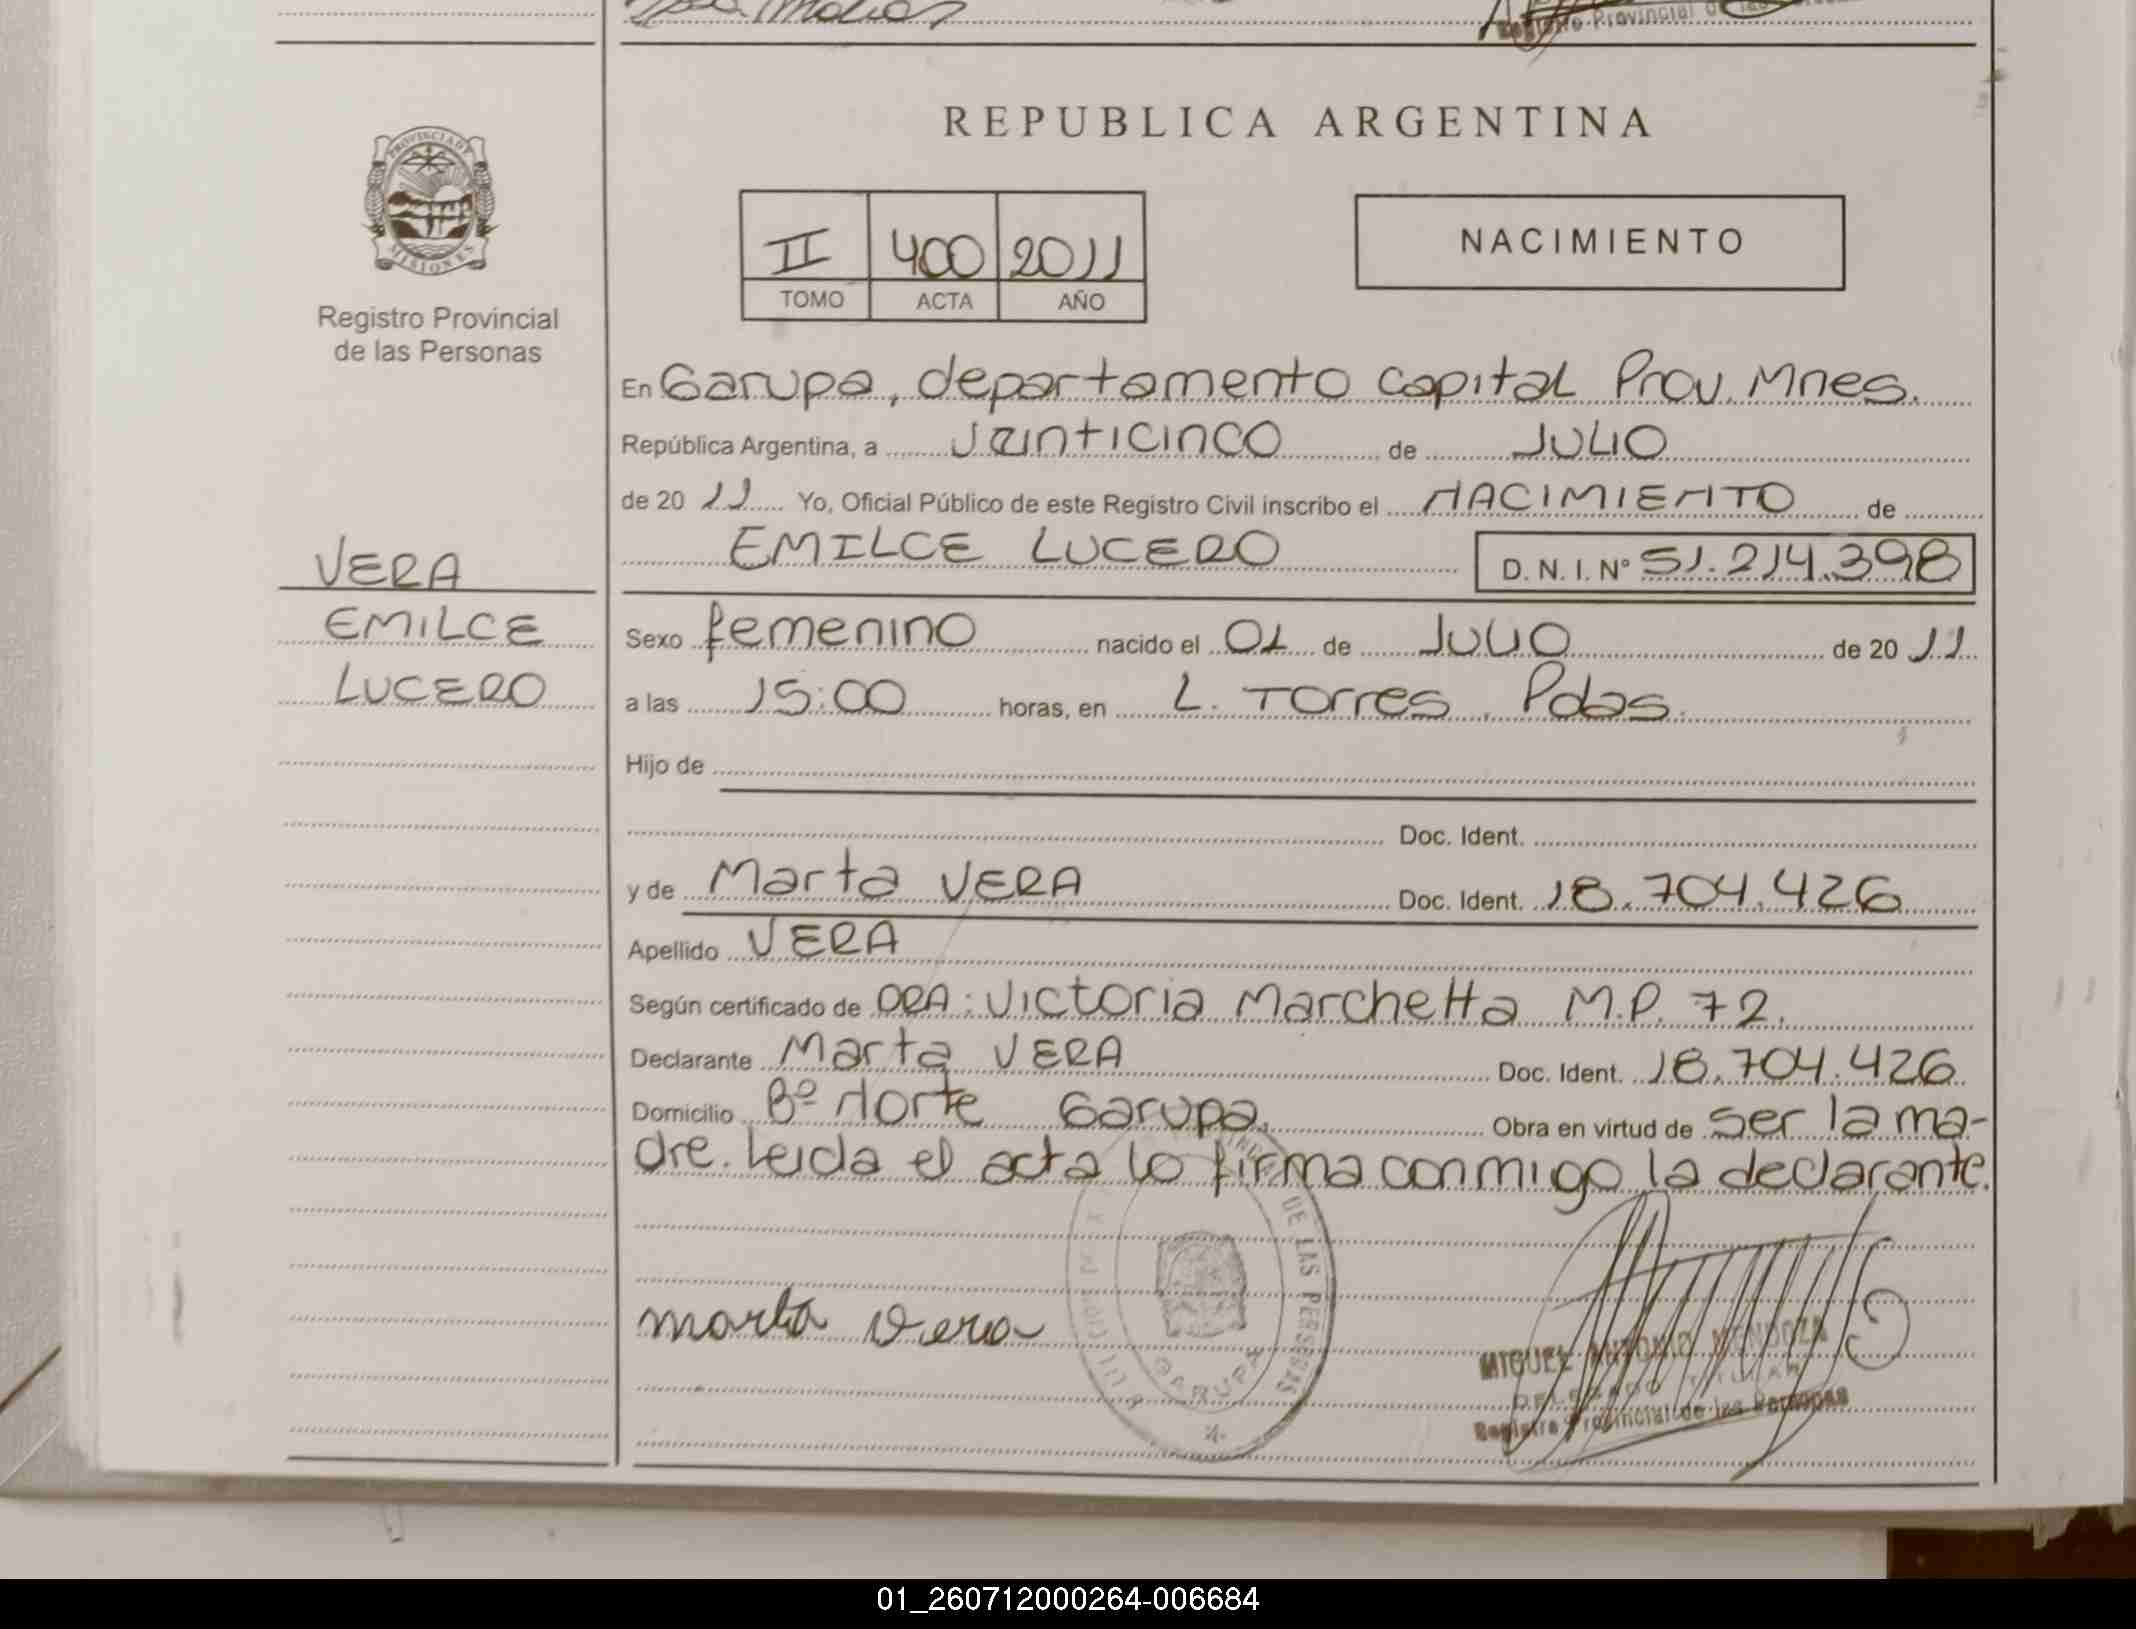 REPUBLICA ARGENTINA
PROVINCIA DE
MISIONES
Registro Provincial
de las Personas
II 400 2011
TOMO ACTA AÑO
NACIMIENTO
En Garupa, departamento capital Prov. Mnes.
República Argentina, a Veinticinco de JULIO
de 20 11 Yo, Oficial Público de este Registro Civil inscribo el NACIMIENTO de
EMILCE LUCERO D. N. I. Nº 51.214.398
VERA
EMILCE
LUCERO
Sexo femenino nacido el 01 de JULIO de 20 11
a las 15:00 horas, en L. Torres. Pdas.
Hijo de
Doc. Ident.
y de Marta VERA Doc. Ident. 18.704.426
Apellido VERA
Según certificado de DRA: Victoria Marchetta M.P. 72.
Declarante Marta VERA Doc. Ident. 18.704.426
Domicilio Bº Norte Garupa. Obra en virtud de ser la ma-
dre. Leida el acta lo firma conmigo la declarante.
marta vera
DE LAS PERSONAS
GARUPA
MIGUEL ANTONIO MENDOZA
DELEGADO TITULAR
Registro Provincial de las Personas
01_260712000264-006684